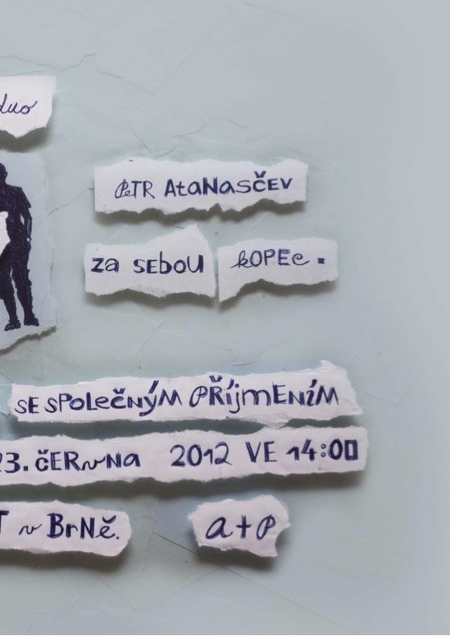 duo
PETR AtaNasČEV
za SEBOU kOPEc.
SE SPOlEčNÝM PŘÍjmENÍM
23. ČERvNa 2012 VE 14:00
T v BrNě.
a+p